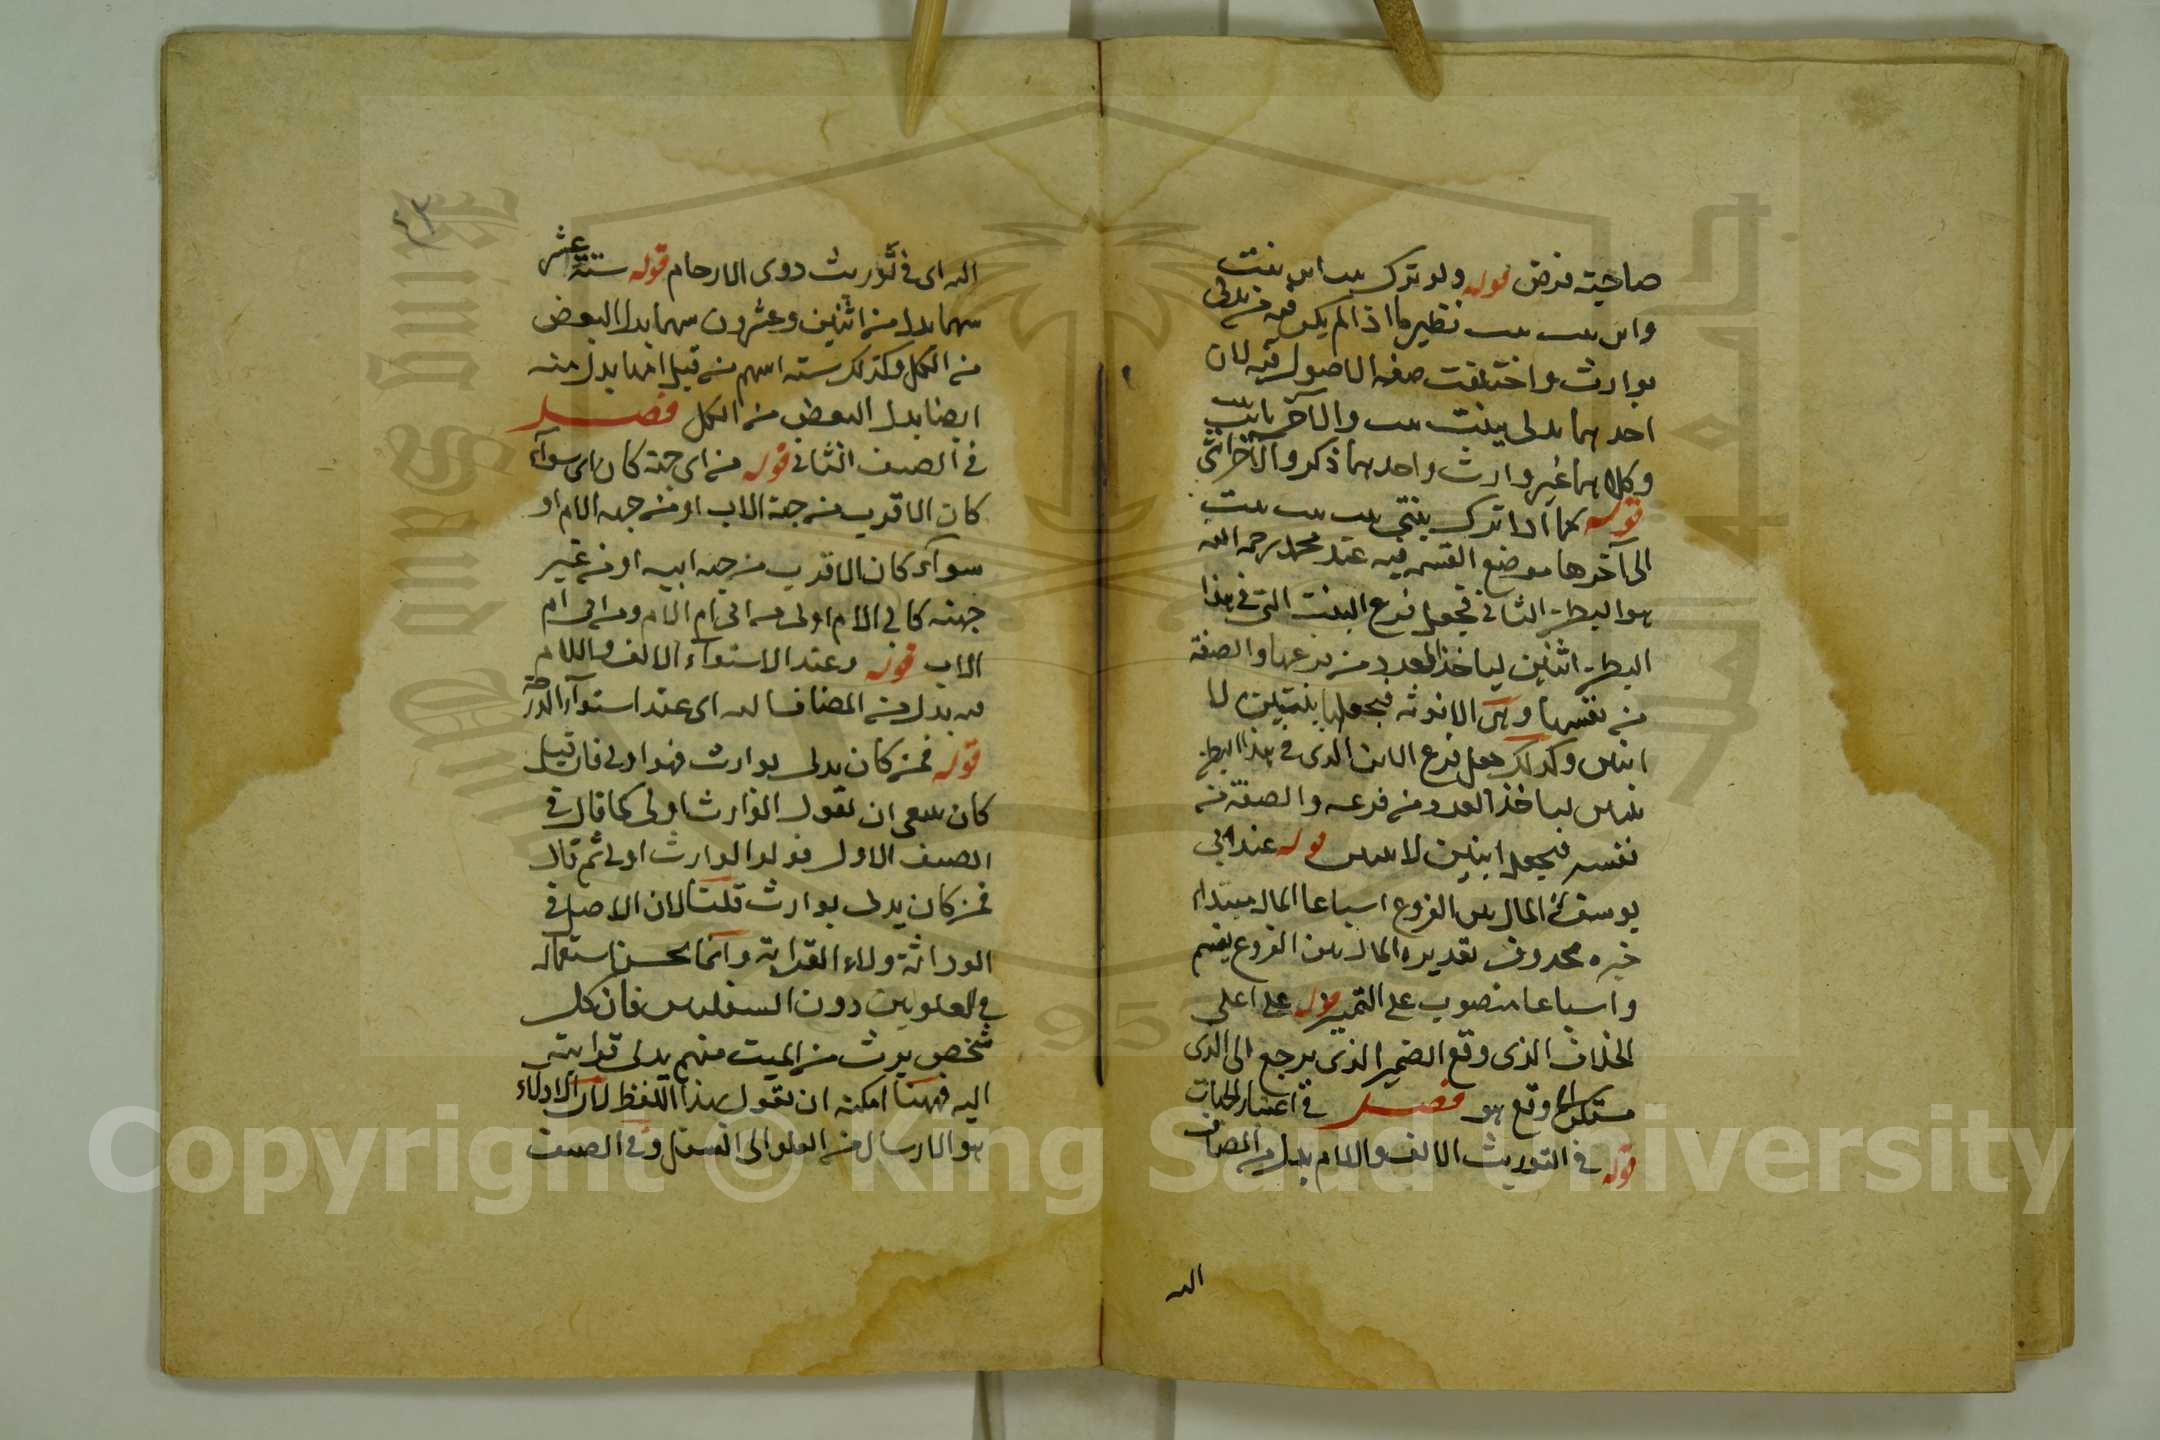 صاحبته فرض قوله ولو ترك بنت ابن بنت
وابن بنت بنت نظير ما اذا لم يكن فيه من يدلى
بوارث واختلفت صفة الاصول فيه لان
احدهما يدلى ببنت بنت والآخر بابن بنت
وكلاهما غير وارث واحدهما ذكر والآخر انثى
قوله كما اذا ترك بنتى بنت بنت بنت
الى آخرها موضع القسمه فيه عند محمد رحمه الله
هو البطن الثانى فيجعل فرع البنت التى فى هذا
البطن اثنين لياخذ العدد من فرعها والصفة
من نفسها وهى الانوثه فيجعلها بنتين لا
ابنين وكذلك جعل فرع الابن الذى فى هذا البطن
بنتين لياخذ العدد من فرعه والصفة من
نفسه فيجعل ابنين لا بنتين قوله عند ابى
يوسف المال بين الفروع اسباعا المال مبتداء
خبره محذوف تقديره المال بين الفروع يقسم
واسباعا منصوب على التمييز قوله على اعلى
الخلاف الذى وقع الضمير الذى يرجع الى الذى
مستكن فى وقع هو فصل فى اعتبار الجهات
قوله فى التوريث الالف واللام بدل من المضاف
اليه
٤٣
اليه اى فى توريث ذوى الارحام قوله ستة عشر
سهما بدل من اثنين وعشرون سهما بدل البعض
من الكل وكذلك ستة اسهم من قبل امها بدل منه
ايضا بدل البعض من الكل فصل
فى الصنف الثانى قوله من اى جهة كان اى سواء
كان الاقرب من جهة الاب او من جهة الام او
سواء كان الاقرب من جهة ابيه او من غير
جهته كابى الام اولى من ابى ام الام ومن ابى ام
الاب قوله وعند الاستواء الالف واللام
فيه بدل من المضاف اليه اى عند استواء الدرجة
قوله فمن كان يدلى بوارث فهو اولى فان قيل
كان ينبغى ان يقول الوارث اولى كما قال فى
الصنف الاول فولد الوارث اولى ثم قال
فمن كان يدلى بوارث قلنا لان الاصل فى
الوراثة ولاء القرابة وانما يحسن استعماله
فى العلويين دون السفليين فان كل
شخص يرث من الميت منهم يدلى قرابته
اليه فههنا امكنه ان يقول بهذا اللفظ لان الادلاء
هو الارسال من العلو الى السفل وفى الصنف
Copyright © King Saud University